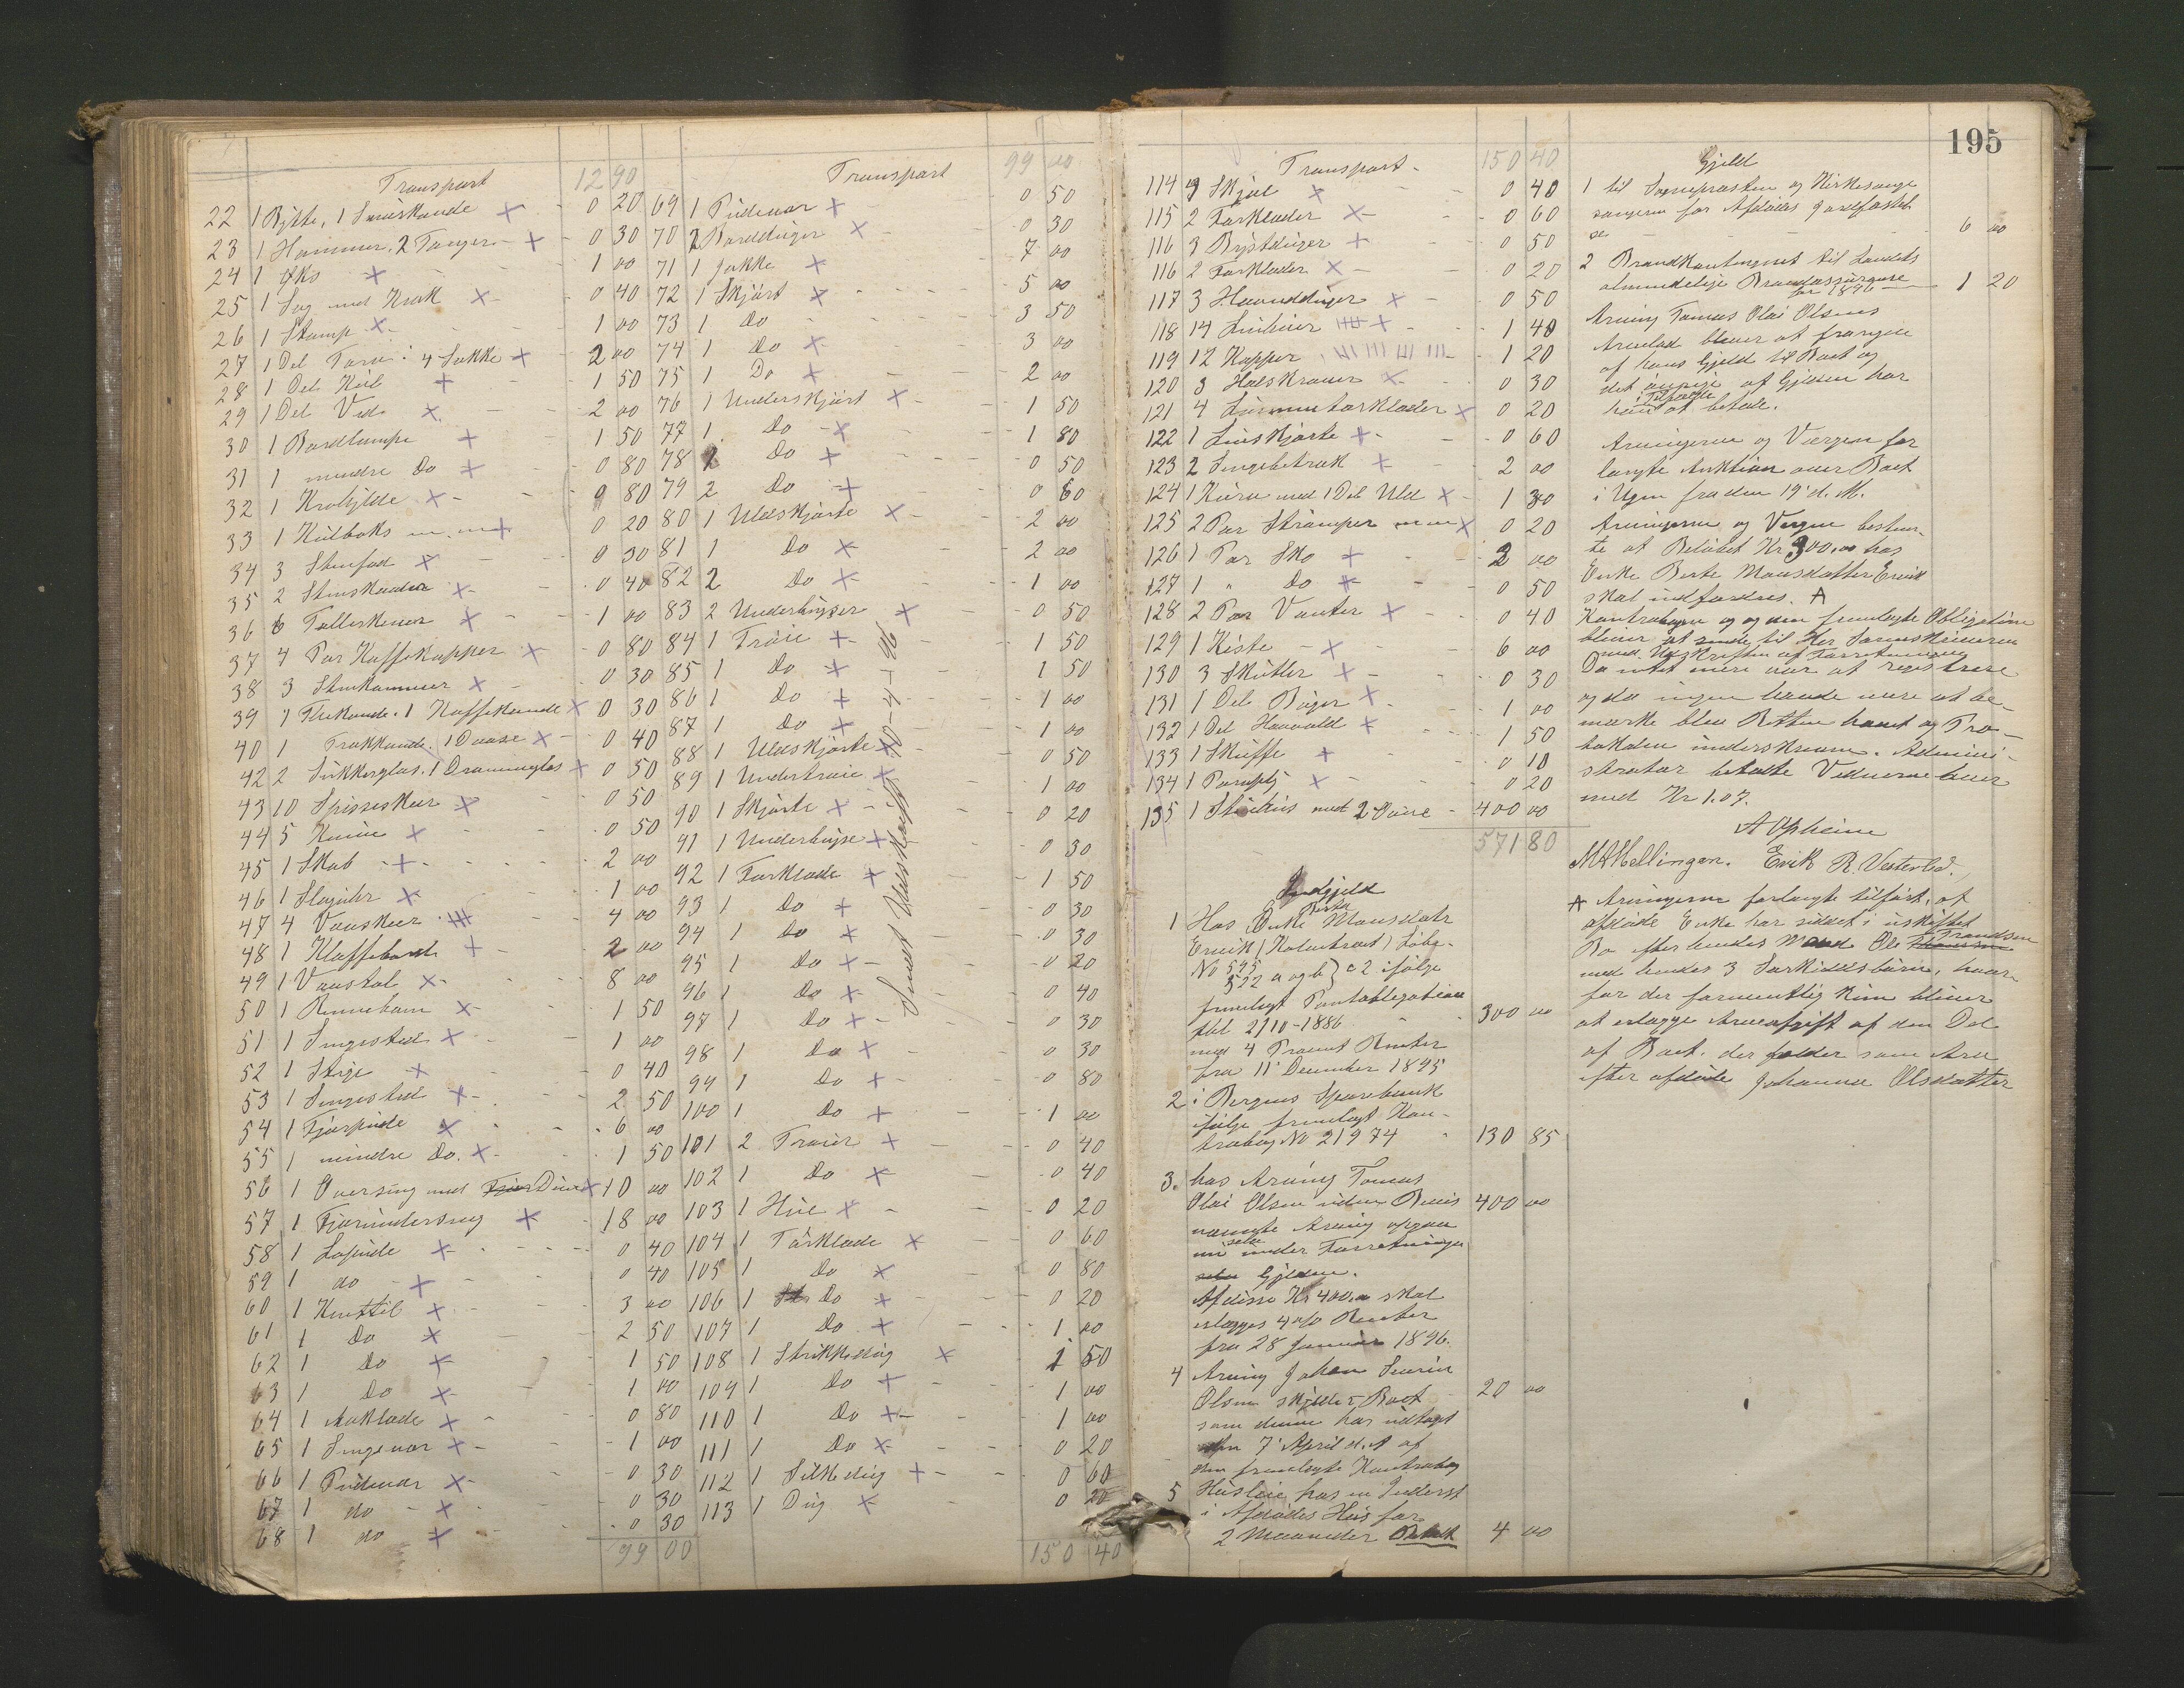 Transport 12 90
22 1 Bytte, 1 Smørkande 0 20
23 1 Hammer. 2 Tanger 0 30
24 1 Øks 1 00
25 1 Sag med Krak 0 40
26 1 Stamp 1 00
27 1 Del Tare i 4 Sække 2 00
28 1 Del Kul 1 50
29 1 Del Ved 2 00
30 1 Bordlampe 1 50
31 1 mindre Do 0 80
32 1 9 80
33 1 Kulboks m.m 0 20
34 3 Stenfad 0 30
35 2 Stenskander 0 40
36 6 Tallerkener 1 00
37 4 Par Kaffekopper 0 80
38 3 Stenkammer 0 30
39 1 Thekande. 1 Kaffekande 0 30
40 1 Trakkande. 1 Daase 0 40
42 2 Sukkerglas. 1 Dramglas 0 50
43 10 Spiseskeer 0 50
44 5 Knive 0 50
45 1 Skab 2 00
46 1 Slaguhr 1 00
47 4 4 00
48 1 Klaffebord 2 00
49 1 Vævstol 8 00
50 1 1 50
51 1 Sengested 1 00
52 1 Stige 0 40
53 1 Sengested 2 50
54 1 Fjærpude 6 00
55 1 mindre Do. 1 50
56 1 Oversæng med Duun 10 00
57 1 Fjærundersæng 18 00
58 1 0 40
59 1 do 0 40
60 1 3 00
61 1 Do 2 50
62 1 Do 1 50
63 1 Do 1 00
64 1 Aaklæde 0 80
65 1 Sengevar 1 00
66 1 Pudevar 0 30
67 1 do 0 30
68 1 do 0 30
99 00
Transport 99 00
69 1 Pudevar 0 50
70 2 Bordduger 0 30
71 1 Jakke 7 00
72 1 Skjørt 5 00
73 1 Do 3 50
74 1 Do 3 00
75 1 Do 2 00
76 1 Underskjørt 1 50
77 1 Do 1 80
78 1 Do 0 50
79 2 Do 0 60
80 1 Uldskjorte 2 00
81 1 Do 2 00
82 2 Do 1 00
83 2 Underbuxer 0 50
84 1 Trøie 1 50
85 1 Do 1 50
86 1 Do 1 00
87 1 Do 1 00
88 1 Uldskjorte 0 50
89 1 Undertrøie 1 00
90 1 Skjorte 0 20
91 1 Underbuxe 0 30
92 1 Forklæde 1 50
93 1 Do 0 30
94 1 Do 0 30
95 1 Do 0 20
96 1 Do 0 40
97 1 Do 0 30
98 1 Do 0 30
99 1 Do 0 80
100 1 Do 1 00
101 2 Trøier 0 40
102 1 Do 0 40
103 1 Hue 0 20
104 1 Tørklæde 0 60
105 1 Do 0 80
106 1 Do 0 20
107 1 Do 1 00
108 1 Strikkedug 1 50
109 1 Do 1 00
110 1 Do 1 00
111 1 Do 0 20
112 1 Silkedug 0 60
113 1 Dug 0 20
150 40
Sendt Udskrift 20-4-96
195
Transport 150 40
114 9 Skjæl 0 40
115 2 Forklæder 0 60
116 3 Brystduger 0 50
116 2 Forklæder 0 20
117 3 Haandduger 0 50
118 14 Linhuer 1 40
119 12 Kapper 1 20
120 3 Halskraver 0 30
121 4 Lommetørklæder 0 20
122 1 Linskjorte 0 60
123 2 Sengebetræk 2 00
124 1 Kurv med 1 Del Uld 1 30
125 2 Par Strømper m m 0 20
126 1 Par Sko 2 00
127 1 " Do 0 50
128 2 Par Vanter 0 40
129 1 Kiste 6 00
130 3 Skotler 0 30
131 1 Del Bøger 1 00
132 1 Del 1 50
133 1 Skuffe 0 10
134 1 Paraply 0 20
135 1 Stuehus med 2 400 00
571 80
Indgjeld
1 Hos Enke Berte Monsdatr
Ervik (Kolnetræet) Løbe-
No 595
522 a og b } c 2 ifølge
fremlagt Pantobligation
dat 2/10-1886 300 00
med 4 Procent Renter
fra 11' December 1895
2 i Bergens Sparebank
ifølge fremlagt Kon-
trabog No 21974 130 85
3. hos Arving Tomas
Olai Olsen uden Bevis 400 00
nævnte Arving opgav
selv under Forretningen
Gjelden.
Af disse Kr 400.00 skal
erlægges 4 % Renter
fra 28 Januar 1896.
4 Arving Johan Severin
Olsen skylder Boet 20 00
som denne har udtaget
den 7' April d.A af
den fremlagte Kontrabog
5 Husleie hos en Inderst
i Afdødes Hus for
2 Maaneder Betalt 4 00
Gjeld
1 til Sognepresten og Kirkesange
sangeren for Afdødes Jordfæstel
se 6 00
2 Brandkontingent til Landets
almindelige Brandassurance
for 1896 1 20
Arving Tomas Olai Olsens
Arvelod bliver at fragaa
af hans Gjeld til Boet og
det øvrige af Gjelden har
han i Tilfælde at betale.
Arvingerne og Værgen for
langte Auktion over Boet
i Ugen fra den 19' d. M.
Arvingerne og Vergen bestem-
te at Beløbet Kr 300.00 hos
Enke Berte Monsdatter Ervik
skal indfordres. A
Kontrabogen og den fremlagte Obligation
bliver at sende til Hr Sorenskriveren
med Udskriften af Forretningen
Da intet mere var at registrere
og da ingen havde mere at be-
mærke blev Retten hævet og Pro-
tokollen underskreven. Admini-
strator betalte Vidnerne hver
med Kr 1.07.
A Opheim
M A Mellingen. Erik R. Vesterlid.
A Arvingerne forlangte tilført, at
afdøde Enke har siddet i uskiftet
Bo efter hendes Mand Ole Trondsen
med hendes 3 Særkuldsbørn, hvor-
for der formentlig kun bliver
at erlægge Arveafgift af den Del
af Boet. der falder som Arv
efter afdøde Johanne Olsdatter